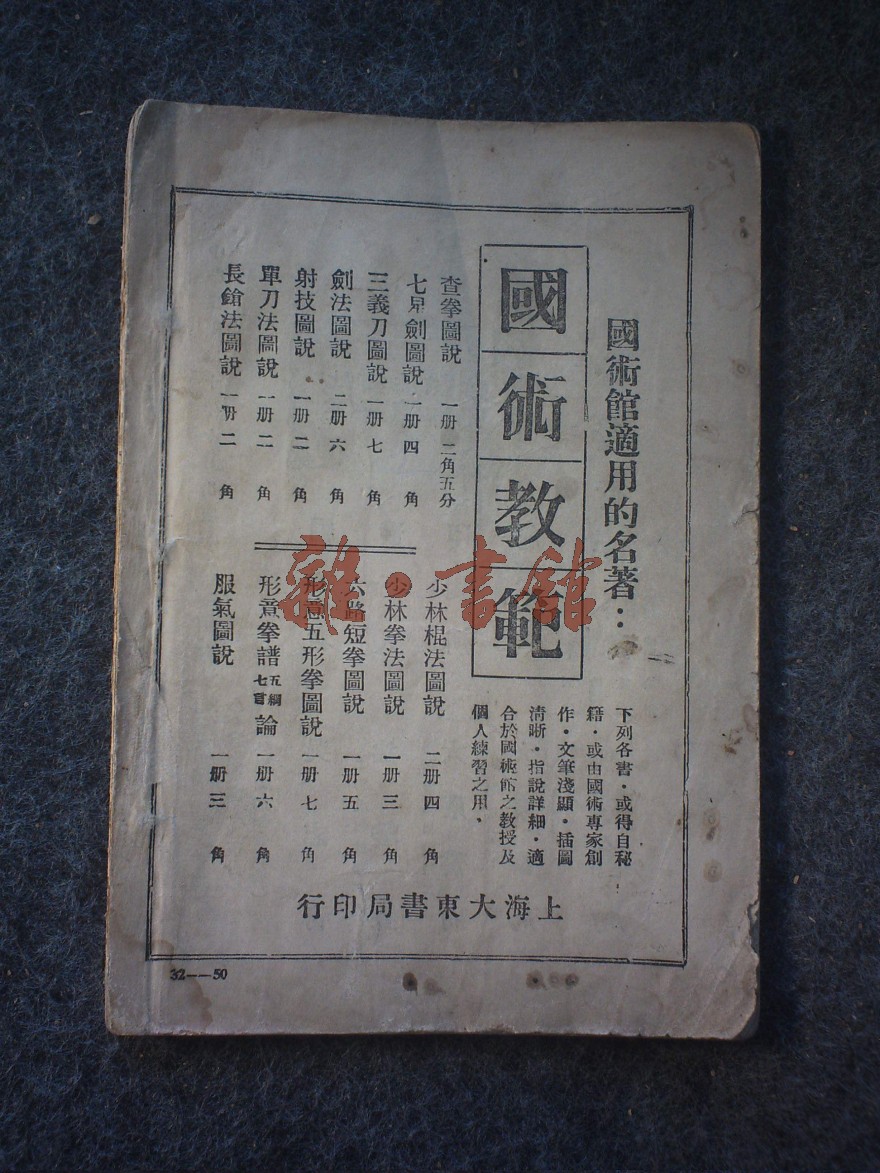 國術館適用的名著：
國術教範
下列各書·或得自秘
籍·或由國術專家創
作·文筆淺顯·插圖
清晰·指說詳細·適
合於國術館之教授及
個人練習之用·
查拳圖說 一册 二角五分
七星劍圖說 一册 四角
三義刀圖說 一册 七角
劍法圖說 二册 六角
射技圖說 一册 二角
單刀法圖說 一册 二角
長鎗法圖說 一册 二角
少林棍法圖說 二册 四角
少林拳法圖說 一册 三角
六路短拳圖說 一册 五角
形意五形拳圖說 一册 七角
形意拳譜五綱七言論 一册 六角
服氣圖說 一册 三角
上海大東書局印行
32——50
雜·書館